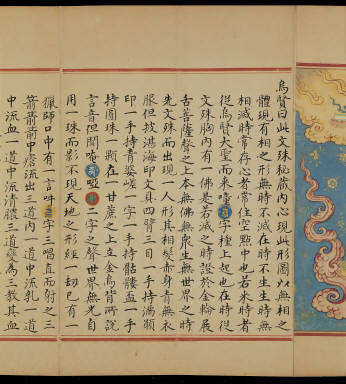 烏賢曰此文殊秘藏內心現此形圖以無相之
體現有相之形無時不滅在時不生生時無
相滅時常存心者常住空點中也若來時者
從烏賢大聖而來 字種上起也在時從
文殊胸內有一佛是若滅之時證於金輪展
舌善薩聲之上本無佛無衆生無世界之時
先文殊而出現一人形其相髮赤身青無衣
服但披湛海印文具四臂三目一手持滿顱
印一手持青 一字一手持骷髏盂一手
持圓珠一顆在甘 之上立金烏背所說
言音但聞 二字之聲世界無光自
用一珠而影不現天地之形經一劫已有一
獵師口中有一言吽 字三唱直而射之三
箭箭箭中 流出三道內一道中流乳一道
中流血一道中流清膿三道變為三教其血